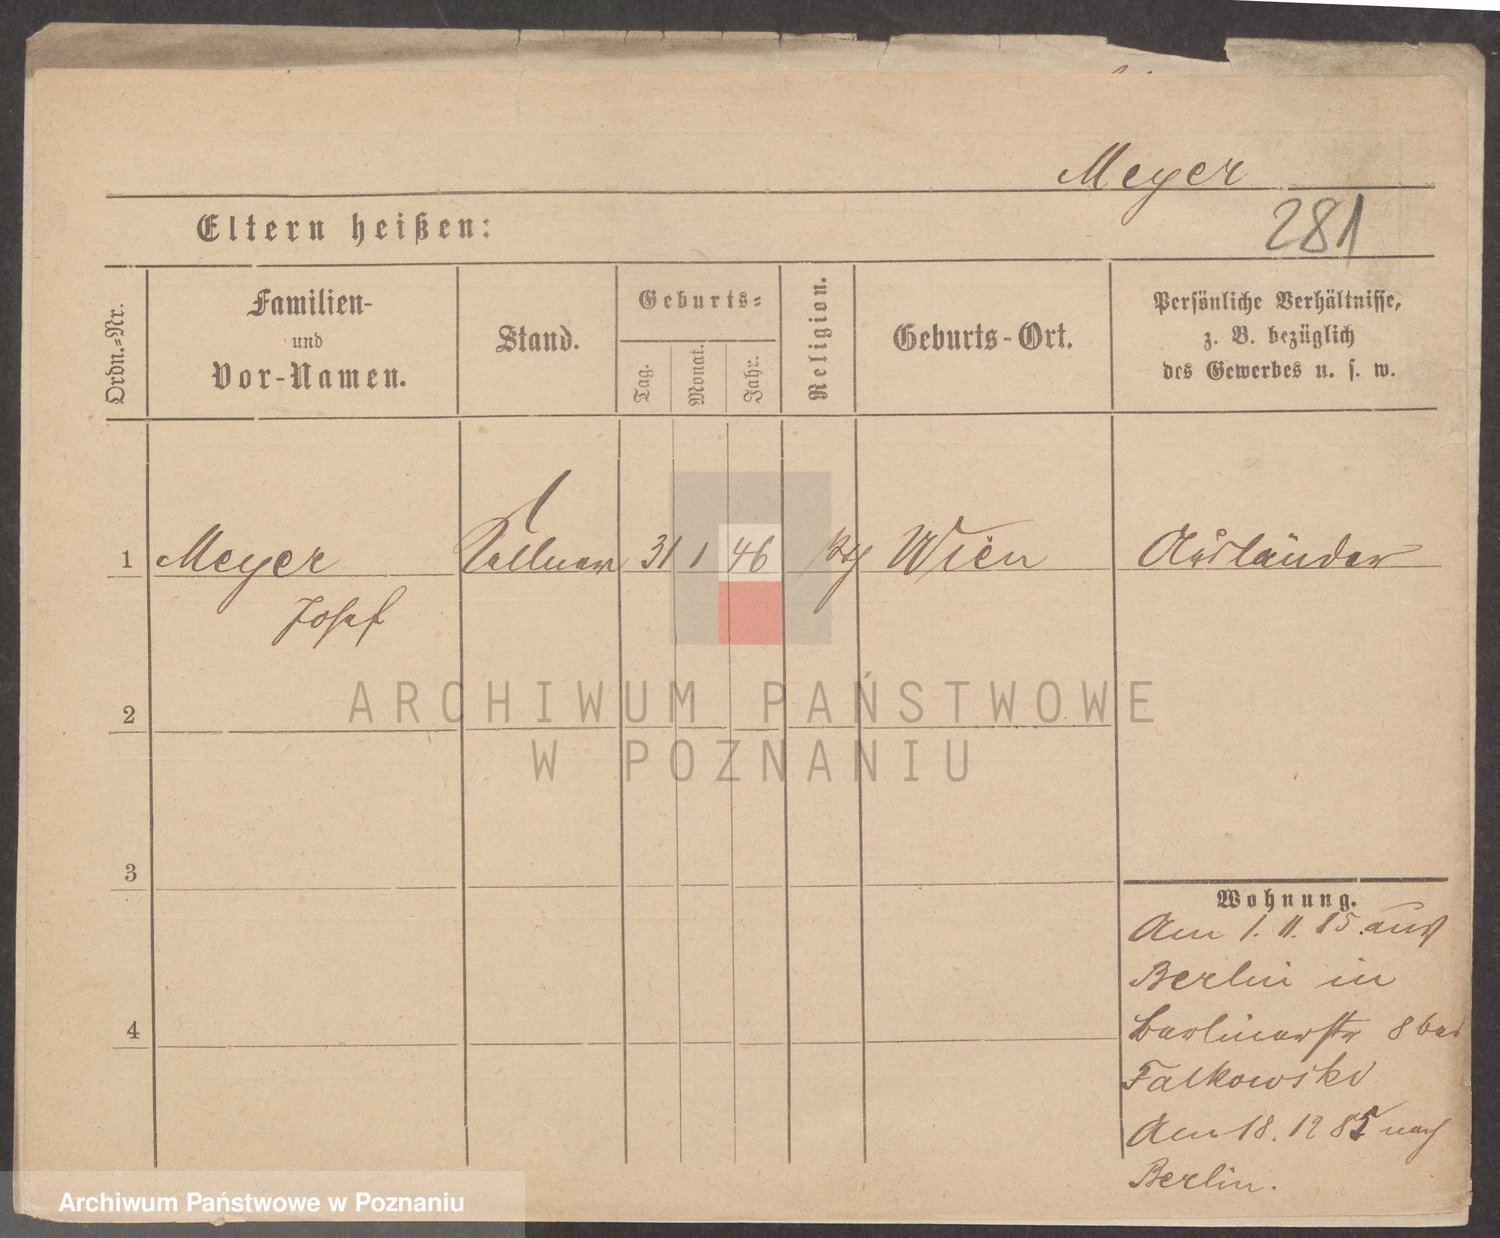 Meyer
281
Eltern heißen:
Ordn.-Nr.
Familien-
und
Vor-Namen.
Stand.
Geburts-
Tag.
Monat.
Jahr.
Religion.
Geburts-Ort.
Persönliche Verhältnisse,
z. B. bezüglich
des Gewerbes u. s. w.
1 Meyer Kellner 31 1 46 kth Wien Ausländer
Josef
2
3
4
Wohnung.
Am 1. 11. 85. aus
Berlin in
Berlinerstr 8 bei
Falkowski
Am 18. 12 85 nach
Berlin.
ARCHIWUM PAŃSTWOWE
W POZNANIU
Archiwum Państwowe w Poznaniu